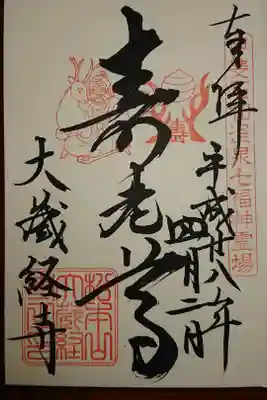 奉拝
甲斐石和温泉七福神霊場
平成廿八年
四月二日
寿老尊
壽
大蔵経寺
松本山
大蔵経